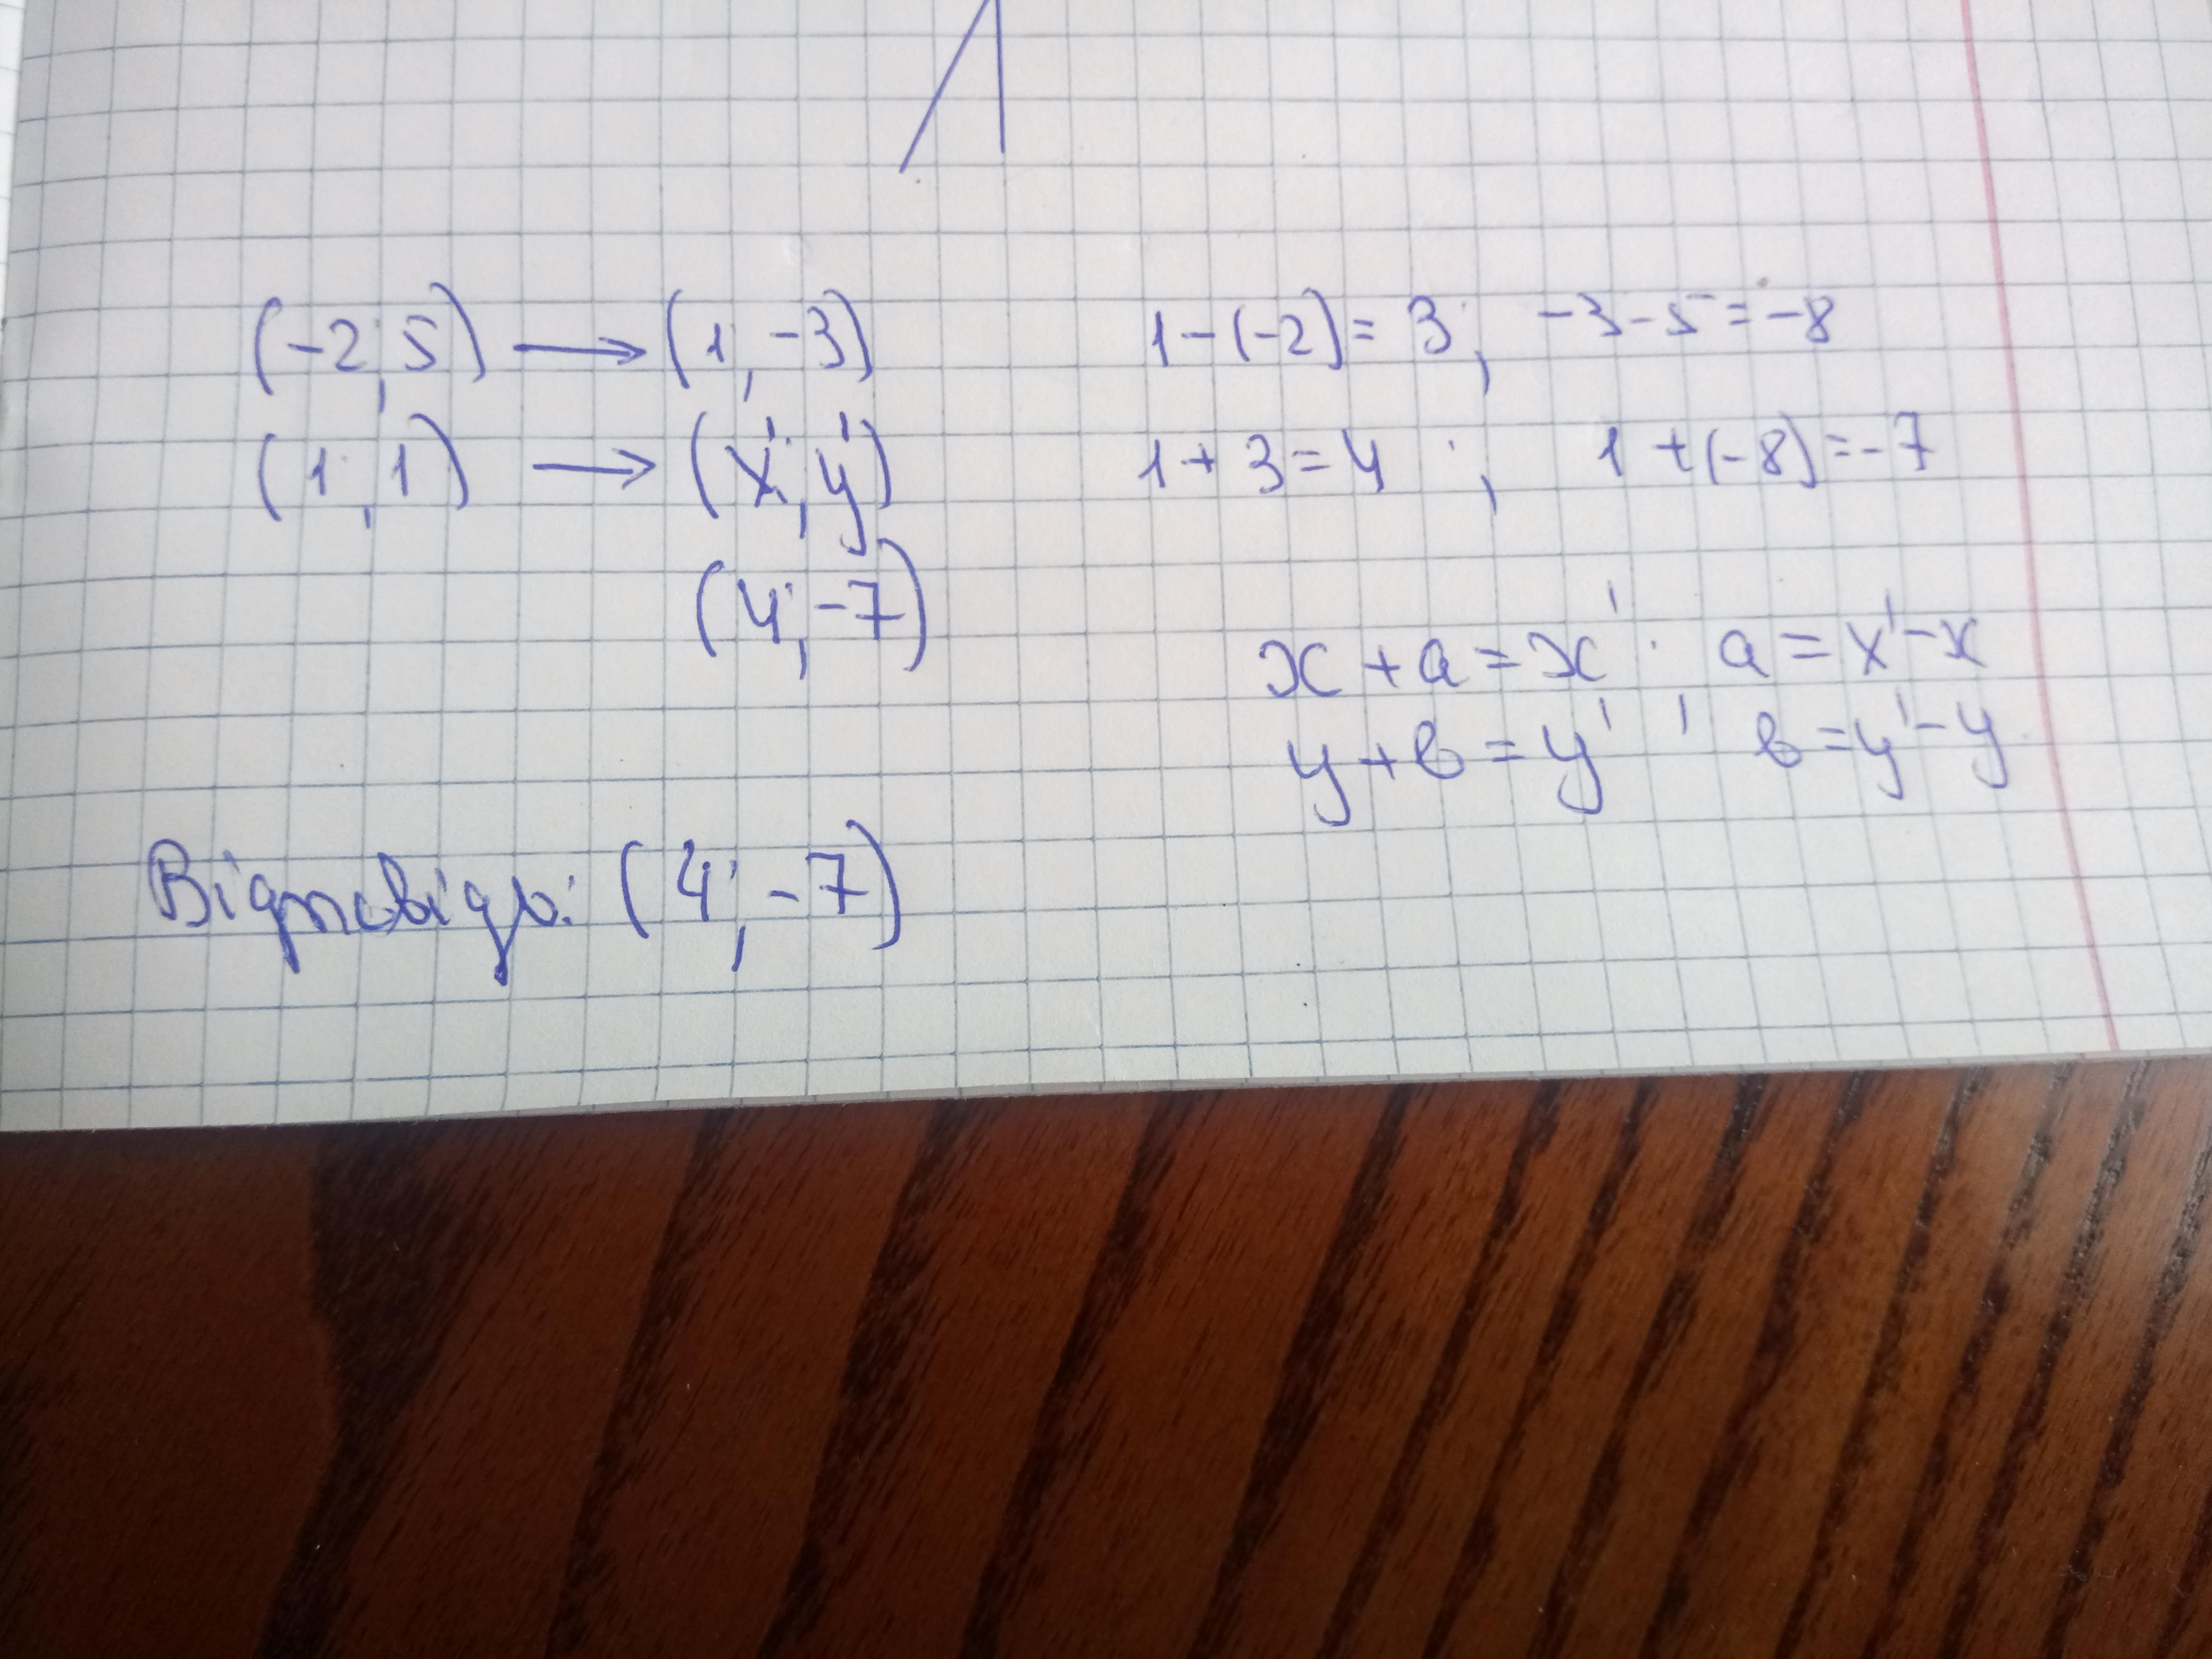 (-2; 5) → (1; -3) 1-(-2)= 3; -3-5=-8
(1; 1) → (x'; y') 1+3=4 ; 1+(-8)=-7
(4; -7)
x+a=x' ; a=x'-x
y+в=y' в=y'-y
Відповідь: (4; -7)